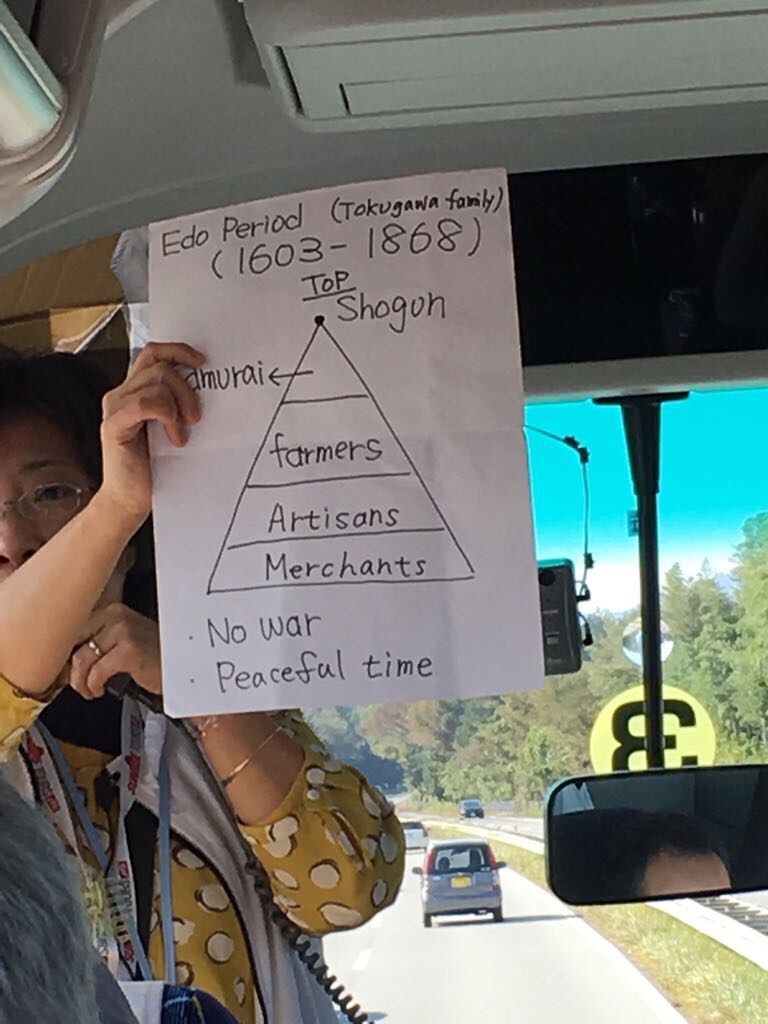 Edo Period (Tokugawa family)
(1603-1868)
TOP
Shogun
amurai←
farmers
Artisans
Merchants
· No war
· Peaceful time
3